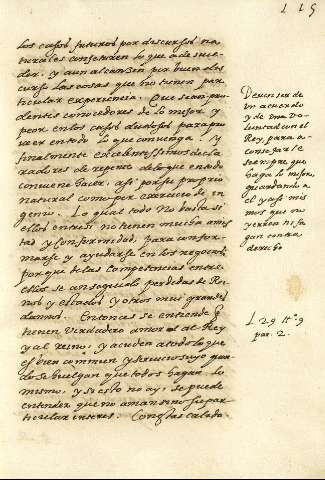 119
los casos futuros por descursos na
turales conjeturen lo que a de suce
der, y aun alcançen por buen dis
curso las cosas que no tienen par
ticular experiencia. Que sean pru
dentes conocedores de lo mejor, y
peor, en los casos dudosos para pro
veer en todo lo que convenga, y
finalmente excelentissimos decla
radores de repente de lo que en todo
conviene hacer, assi por su proprio
natural como por exercicio de in
genio. Lo qual todo no basta si
ellos entre si no tienen mucha amis
tad y conformidad, para confor
marse y ayudarse en los negocios
porque de las competencias entre
ellos se an seguido perdidas de Rei
nos y estados y otros muy grandes
daños. Entonces se entiende que
tienen verdadero amor al Rey
y al reino, y acuden a todo lo que
es bien commun y servicio suyo quan
do se huelgan que todos hagan lo
mismo, y si esto no ay, se puede
entender que no aman sino su par
ticular interes. Con estas calida
Deven ser de
un acuerdo
y de una vo
luntad con el
Rey, para a
consejarle
siempre que
haga lo mejor,
guardando a
el y a si mis
mos que no
yerren ni ha
gan contra
derecho
L. 29 tt.º 9
par. 2.